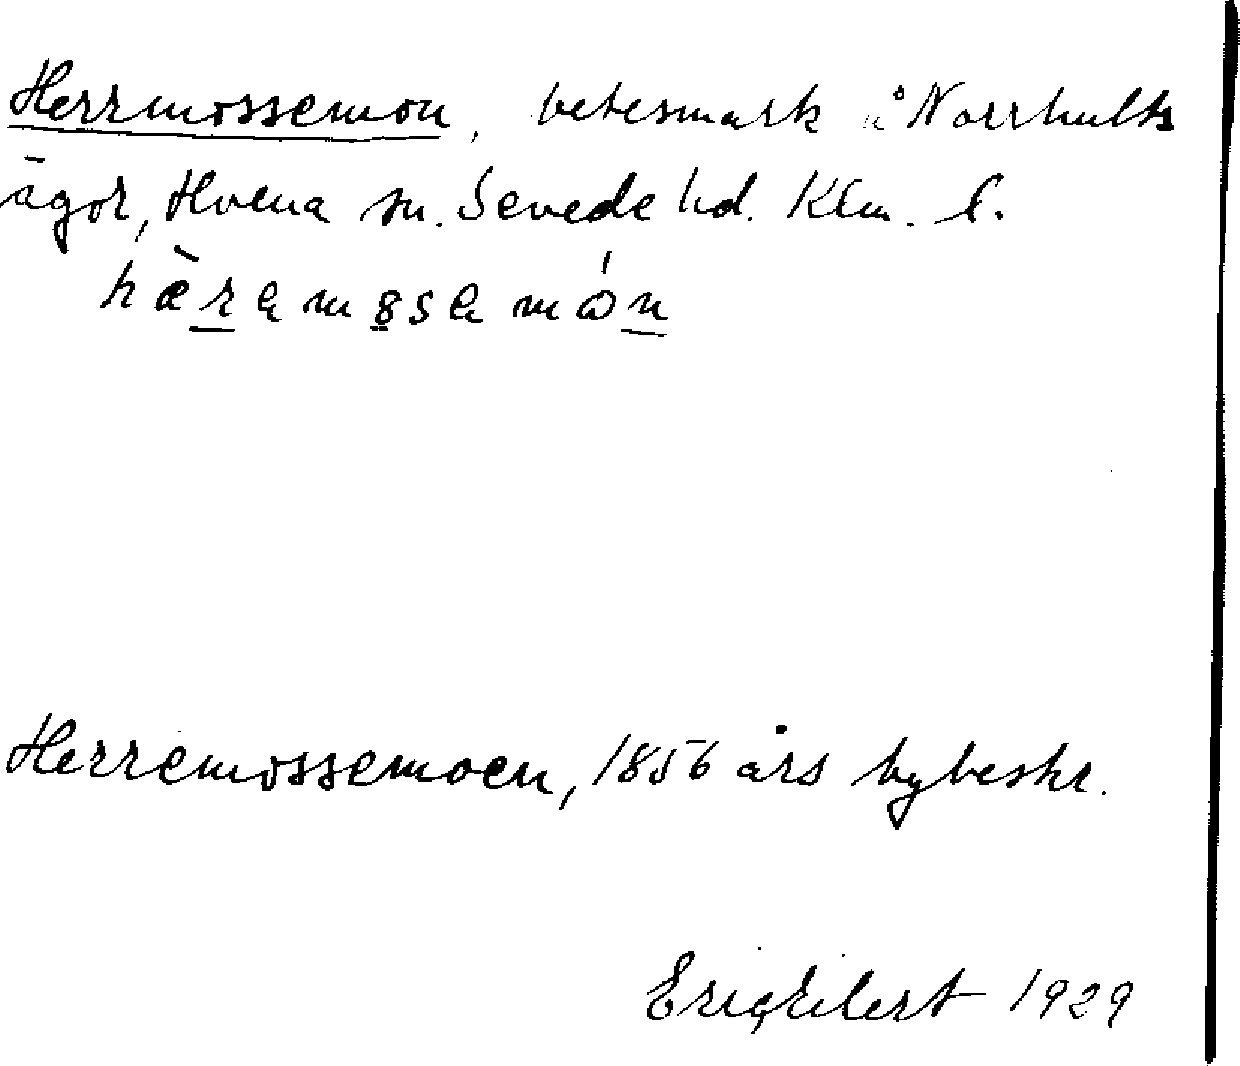 Herrmossemon, betesmark å Norrhults
ägor, Hvena sn. Sevede hd. Klm. l.
hæ̀rəmosə món
Herremossemoen, 1856 års bybeskr.
Eric Eilert 1929